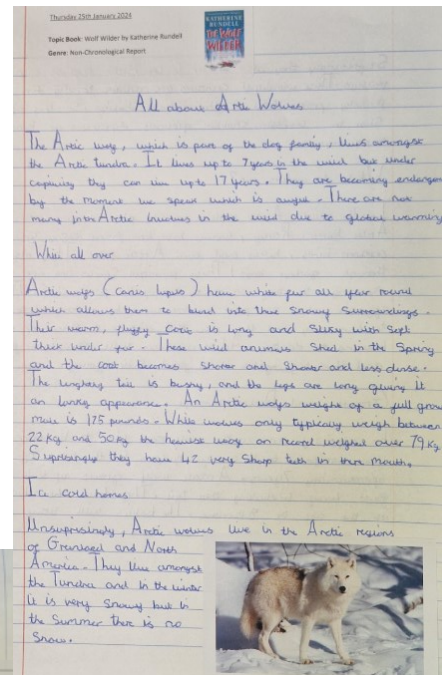 Thursday 25th January 2024
KATHERINE
RUNDELL
THE WOLF
WILDER
Topic Book: Wolf Wilder by Katherine Rundell
Genre: Non-Chronological Report
All about Artic Wolves
The Artic , which is part of the dog family, lives amongst
the Arctic tundra. It lives up to 7 years in the wild but under
captivity they can live up to 17 years. They are becoming endanger
by the moment we speak which is awful. There are not
many Arctic in the wild due to global warming
White all over
Arctic (Canis lupus) have white fur all year round
which allows them to blend into their snowy surroundings.
Their warm, fluffy coat is long and silky with soft
thick under fur. These wild animals shed in the Spring
and the coat becomes and and less dense.
The tail is bushy, and the legs are long giving it
an lanky appearance. An Arctic weight of a full grow
male is 175 pounds. While wolves only typically weigh between
22kg and 50kg the heaviest on record weighed over 79kg
they have 42 very sharp teeth in there mouth.
Ice cold homes
, Arctic wolves live in the Arctic regions
of and North
America. They live amongst
the Tundra and in the winter
it is very snowy but in
the Summer there is no
snow.